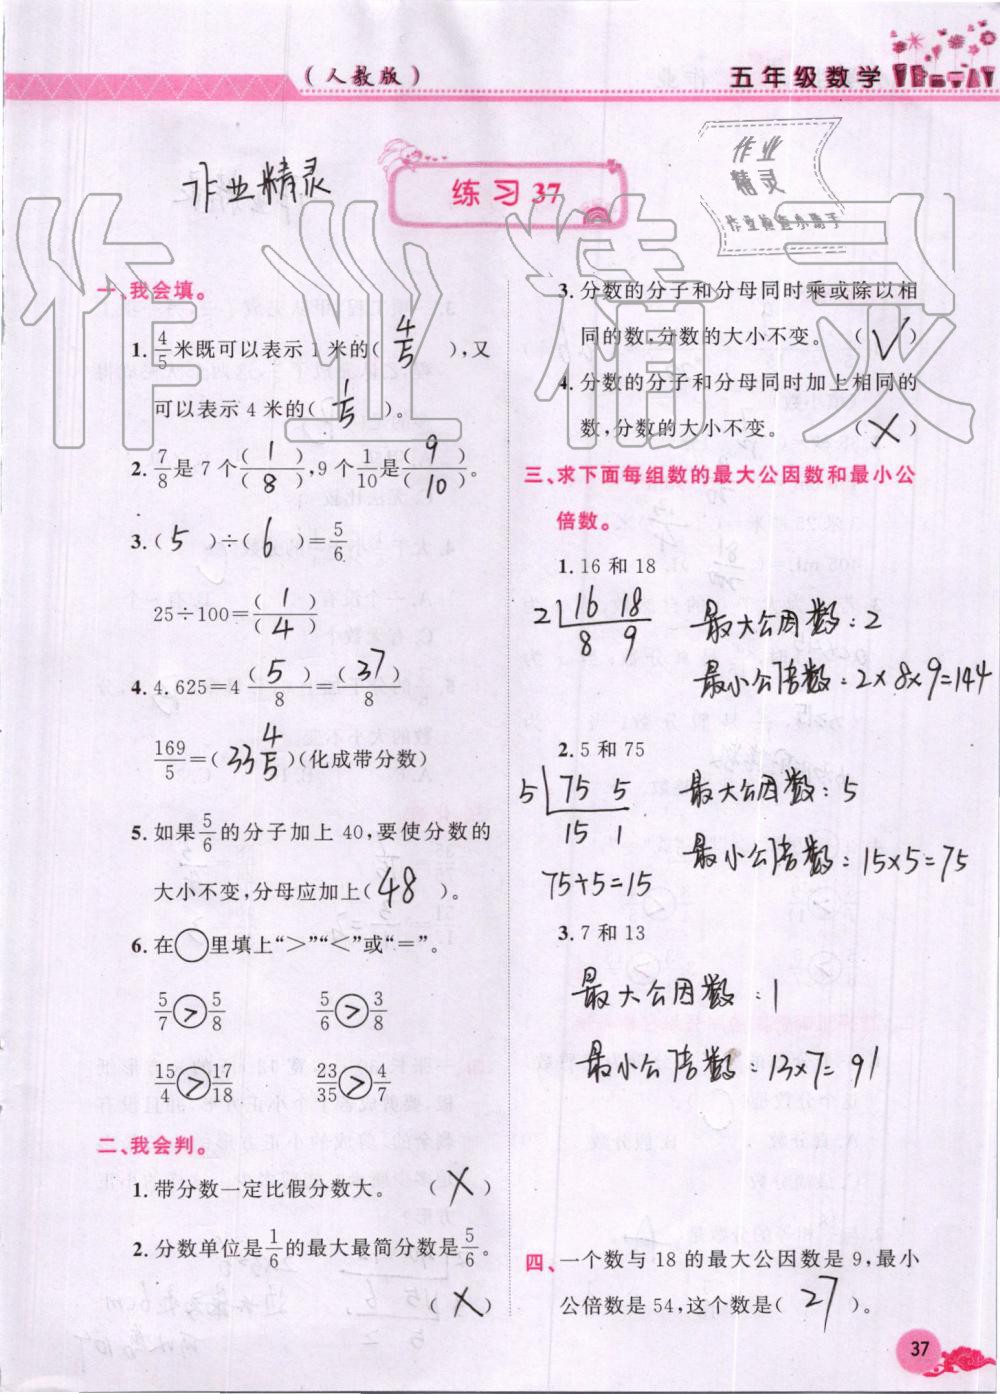 (人教版)
五年级数学
作业精灵
练习 37
作业
精灵
作业检查小助手
作业精灵
一、我会填。
1. 4/5米既可以表示 1 米的( 4/5 ),又
可以表示 4 米的( 1/5 )。
2. 7/8是 7 个( 1 )/( 8 ),9 个1/10是( 9 )/( 10 )。
3. ( 5 )÷( 6 )=5/6
25÷100=( 1 )/( 4 )
4. 4.625=4( 5 )/8=( 37 )/8
169/5=( 33 4/5 )(化成带分数)
5. 如果5/6的分子加上 40,要使分数的
大小不变,分母应加上( 48 )。
6. 在○里填上“>”“<”或“=”。
5/7 > 5/8  5/6 > 3/8
15/4 > 17/18  23/35 > 4/7
二、我会判。
1. 带分数一定比假分数大。 ( × )
2. 分数单位是1/6的最大最简分数是5/6。
( × )
3. 分数的分子和分母同时乘或除以相
同的数,分数的大小不变。 ( √ )
4. 分数的分子和分母同时加上相同的
数,分数的大小不变。 ( × )
三、求下面每组数的最大公因数和最小公
倍数。
1. 16 和 18
2 16 18
8 9
最大公因数:2
最小公倍数:2×8×9=144
2. 5 和 75
5 75 5
15 1
75÷5=15
最大公因数:5
最小公倍数:15×5=75
3. 7 和 13
最大公因数:1
最小公倍数:13×7=91
四、一个数与 18 的最大公因数是 9,最小
公倍数是 54,这个数是( 27 )。
37